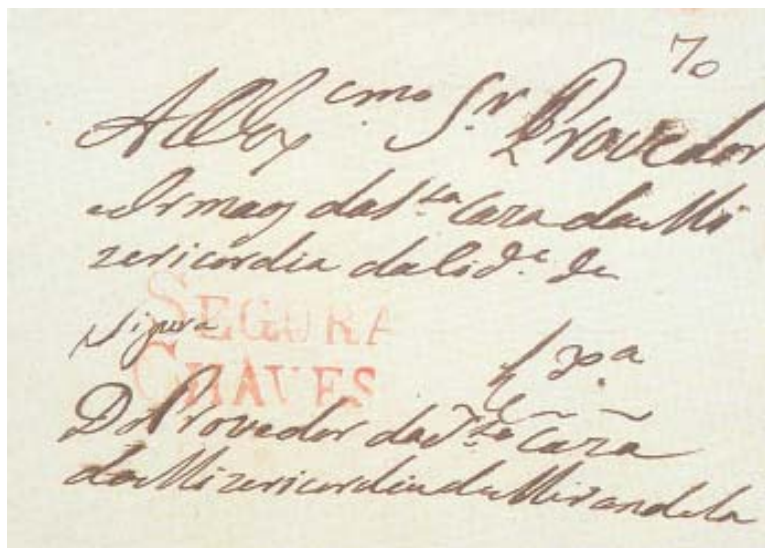 70
Ill Ex cmo Sr. Provedor
e Irmaos da Sta Caza da Mi
zericordia da Cide. de
Segura
SEGURA
CHAVES
Do Provedor da Sta Caza
da Mizericordia da Mirandela